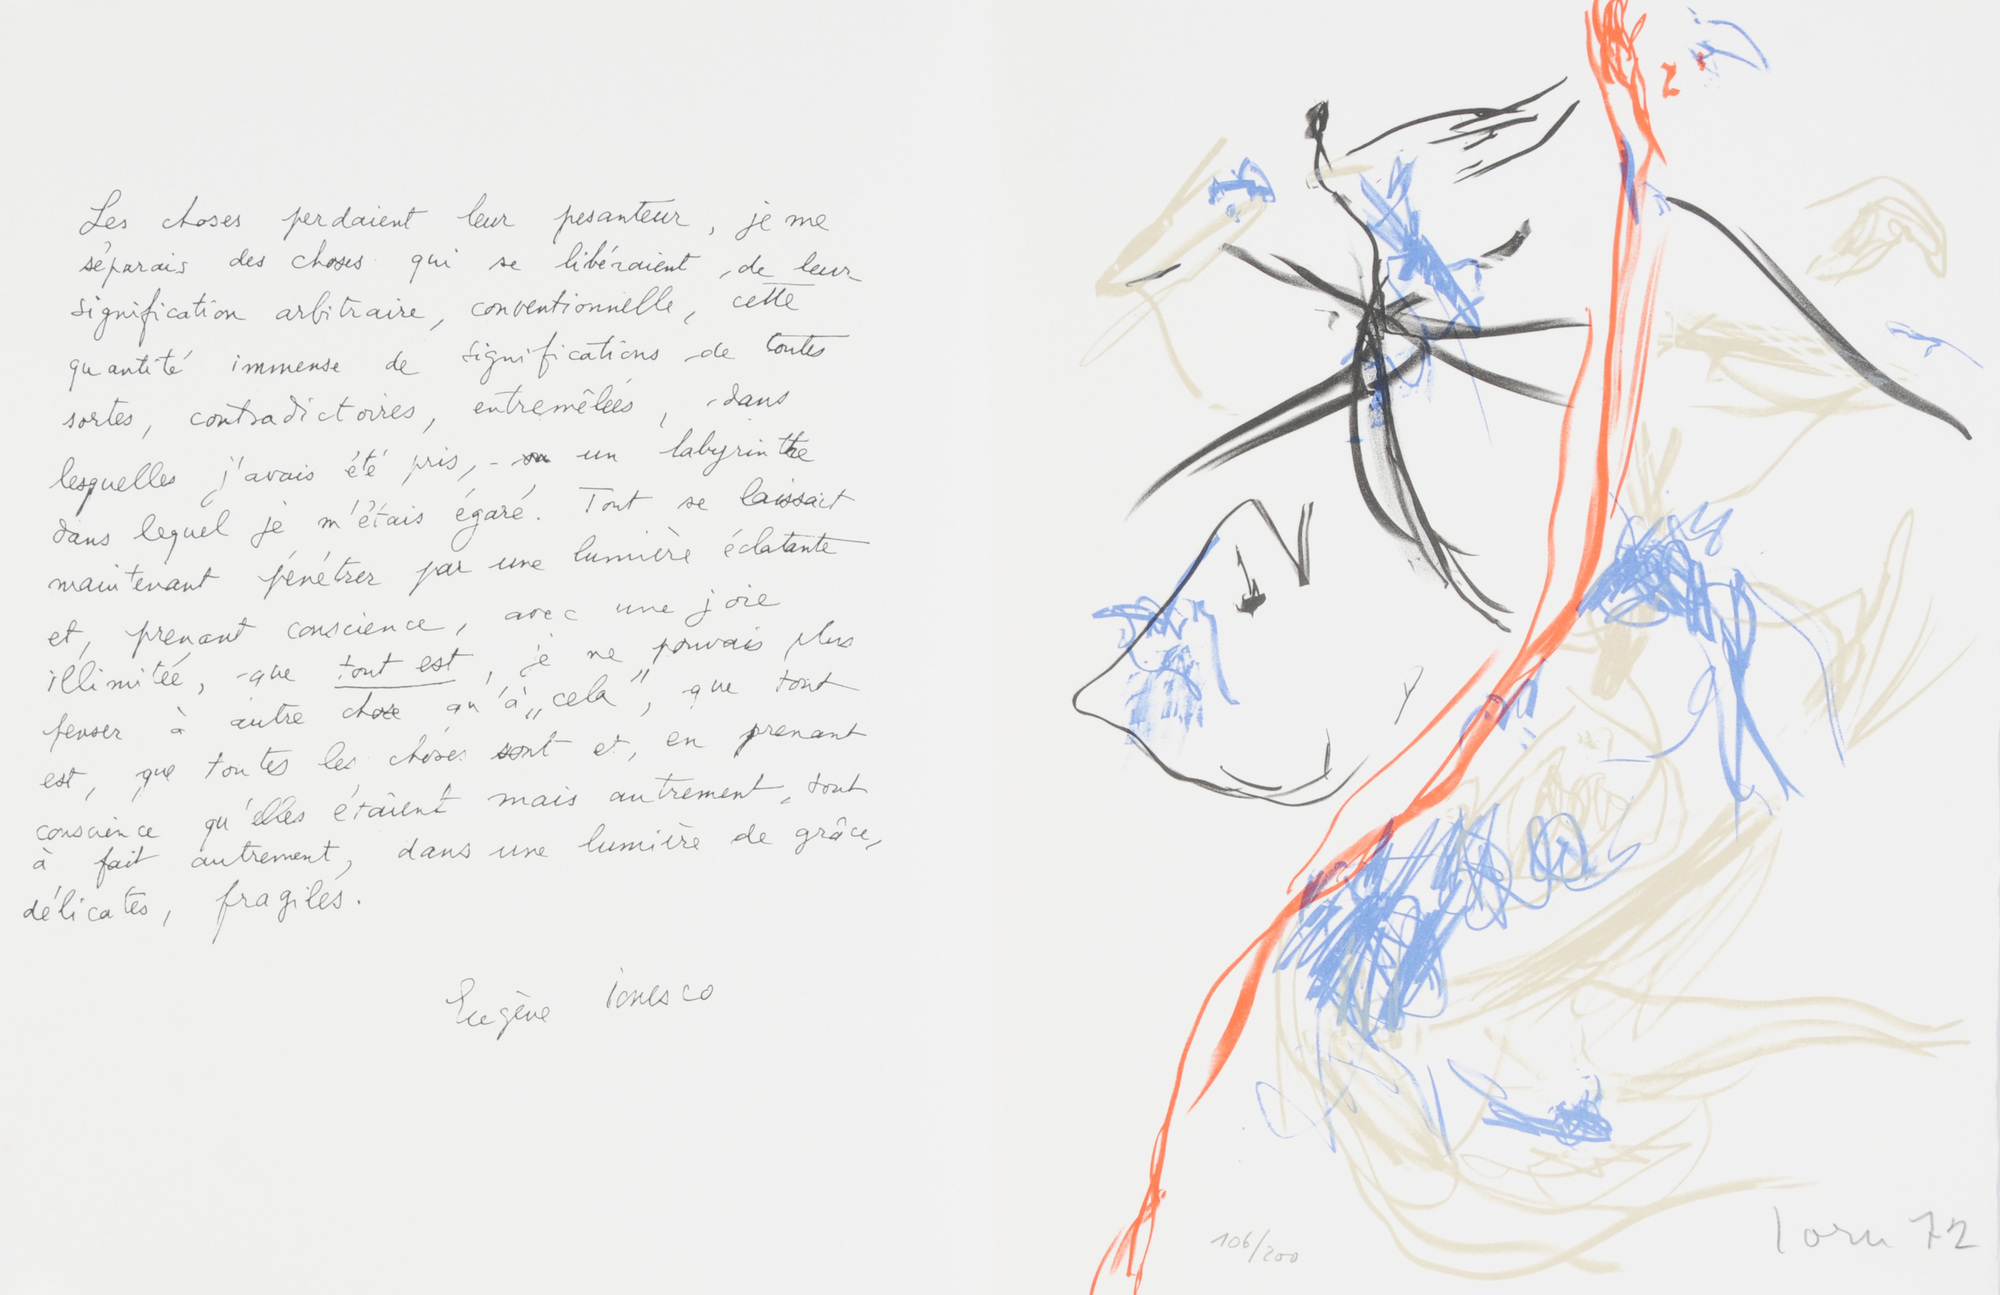 Les choses perdaient leur pesanteur, je me
séparais des choses qui se libéraient, de leur
signification arbitraire, conventionnelle, cette
quantité immense de significations de toutes
sortes, contradictoires, entremêlées, dans
lesquelles j'avais été pris, - un labyrinthe
dans lequel je m'étais égaré. Tout se laissait
maintenant pénétrer par une lumière éclatante
et, prenant conscience, avec une joie
illimitée, que tout est, je ne pouvais plus
penser à autre chose qu'à „cela", que tout
est, que toutes les choses sont et, en prenant
conscience qu'elles étaient mais autrement, tout
à fait autrement, dans une lumière de grâce,
délicates, fragiles.
Eugène Ionesco
106/200
72